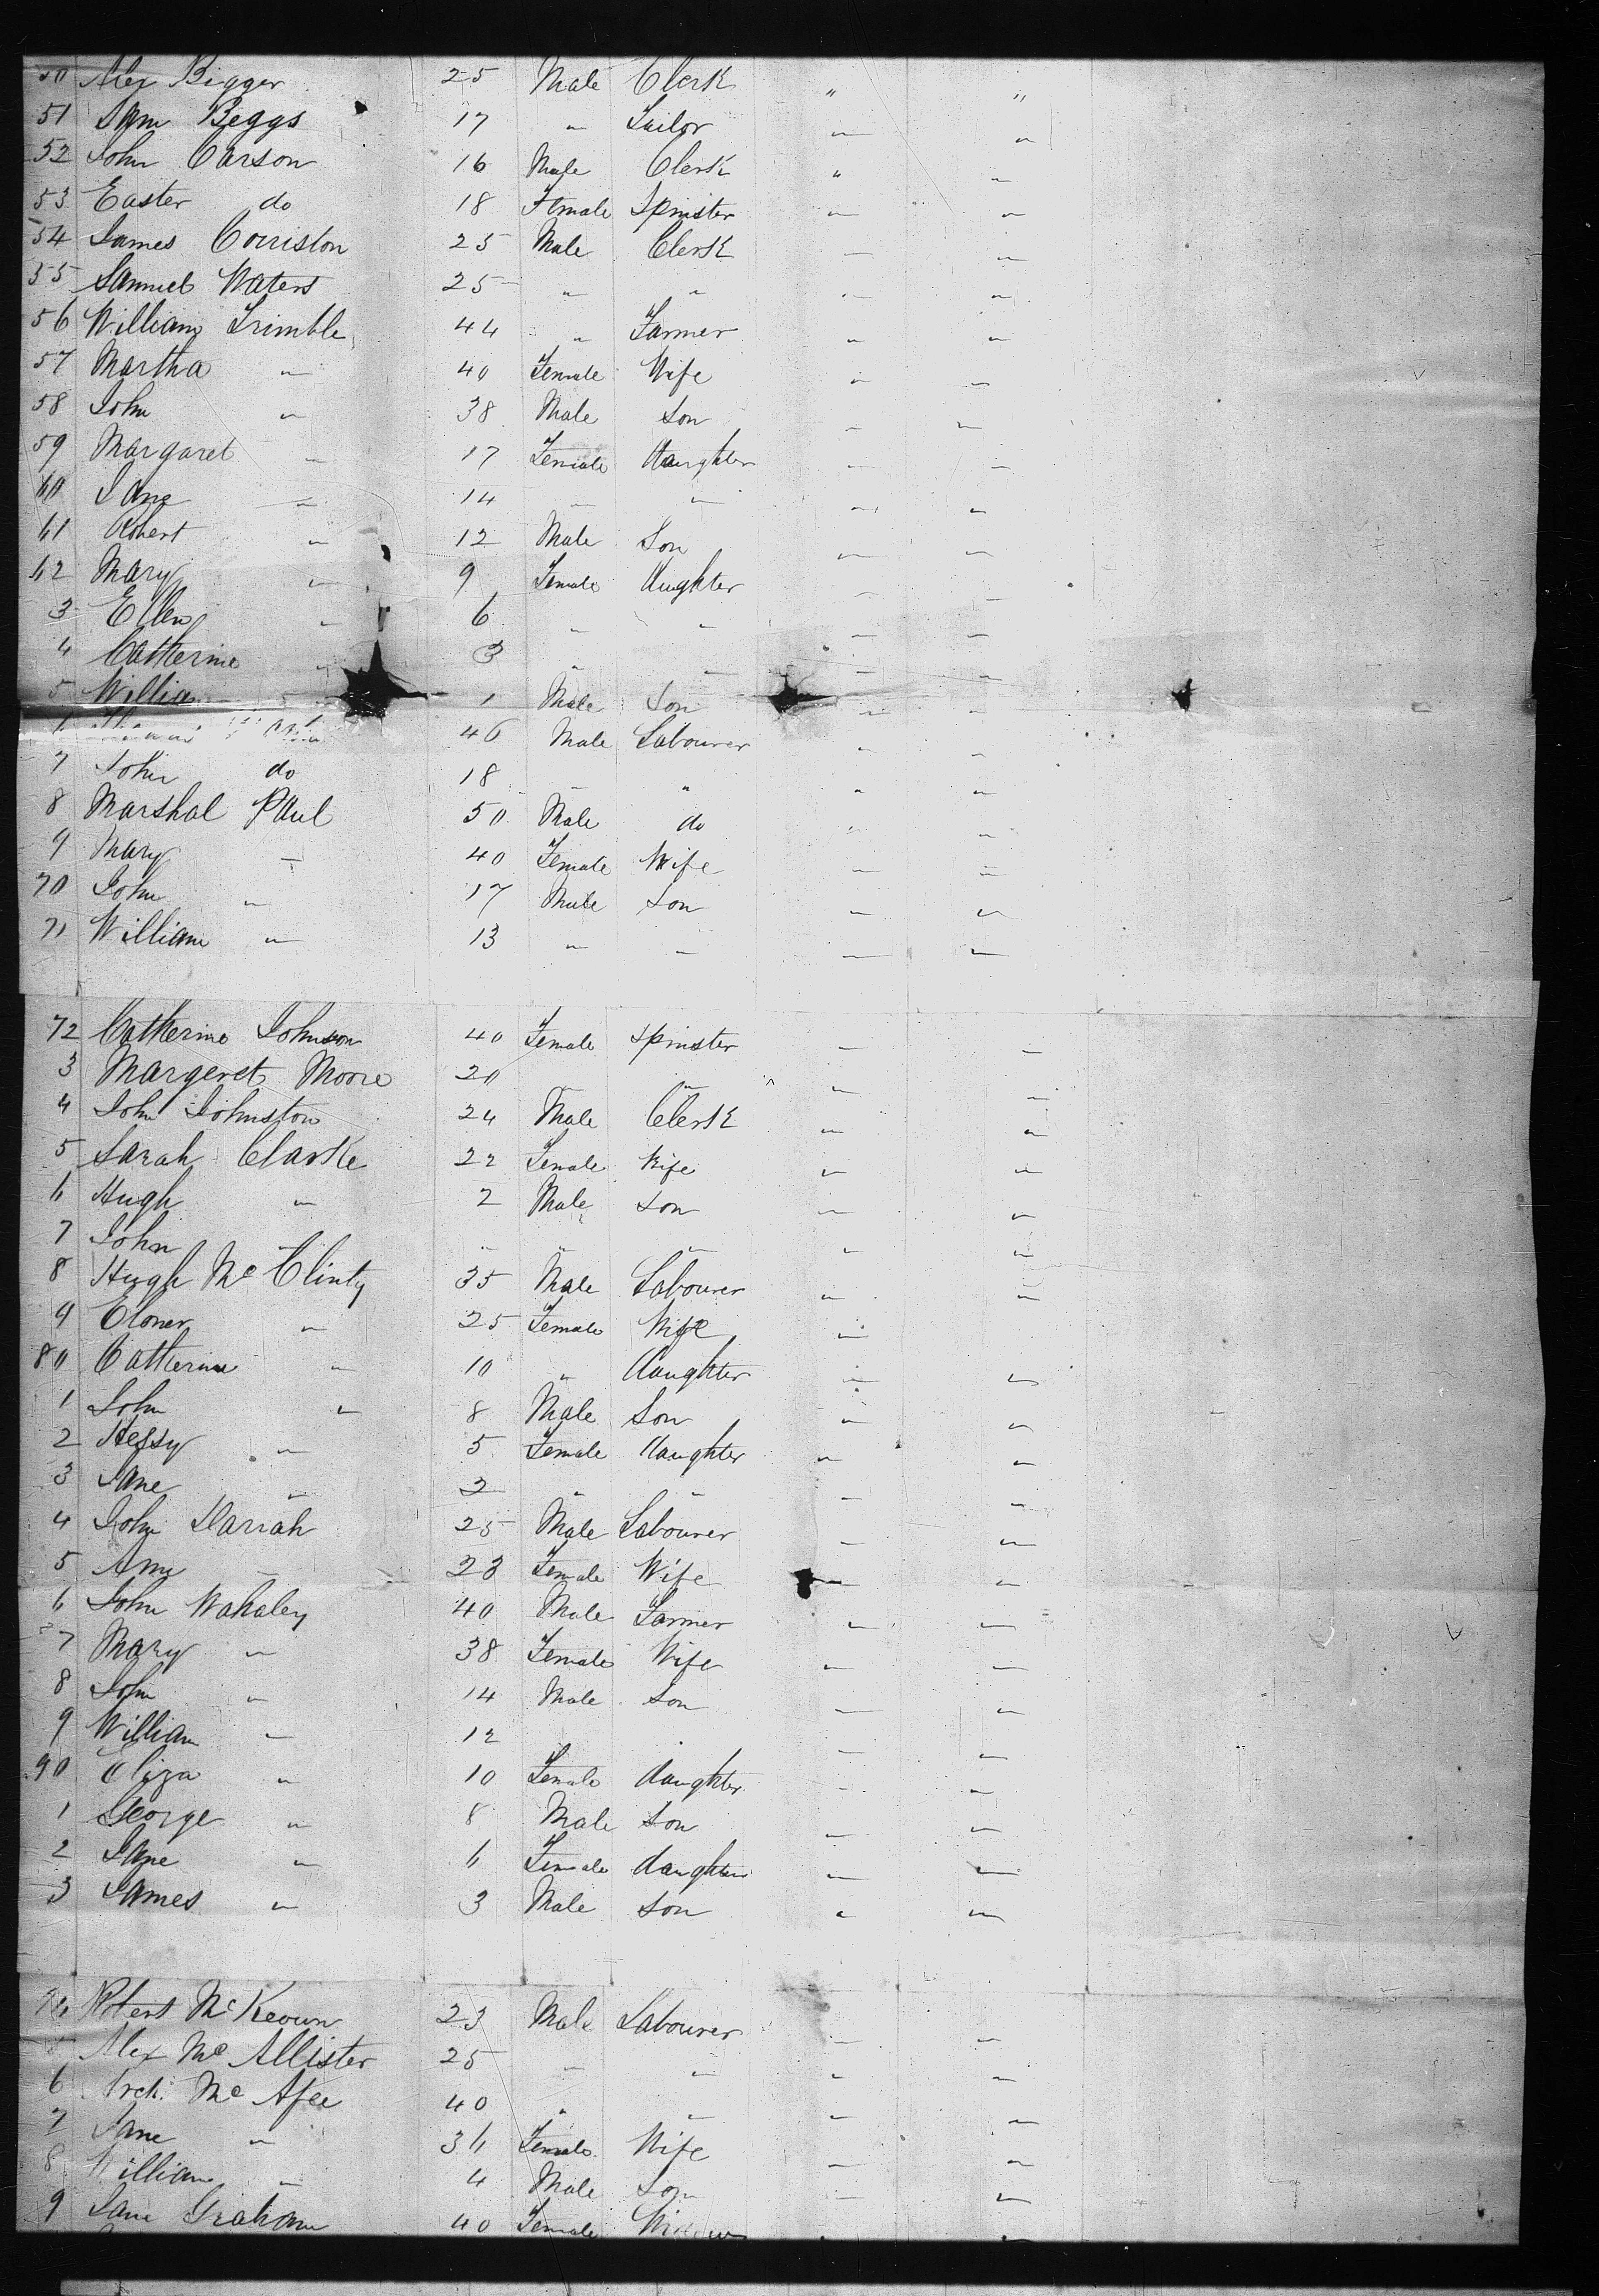 50 Alex Bigger 25 Male Clerk " "
51 Sam Beggs 17 " Tailor " "
52 John Carson 16 Male Clerk " "
53 Easter do 18 Female Spinster " "
54 James Corriston 25 Male Clerk " "
55 Samuel Waters 25 " " " "
56 William Trimble 44 " Farmer " "
57 Martha " 40 Female Wife " "
58 John " 38 Male Son " "
59 Margaret " 17 Female daughter " "
60 Jane " 14 " " " "
61 Robert " 12 Male Son " "
62 Mary " 9 Female daughter " "
3 Ellen " 6 " " " "
4 Catherine " 3 " " " "
5 William 1 Male Son " "
6 46 Male Labourer " "
7 John do 18 " " " "
8 Marshal Paul 50 Male do " "
9 Mary " 40 Female Wife " "
70 John " 17 Male Son " "
71 William " 13 " " " "
72 Catherine Johnson 40 Female Spinster " "
3 Margeret Moore 20 " " " "
4 John Johnston 24 Male Clerk " "
5 Sarah Clarke 22 Female Wife " "
6 Hugh " 2 Male Son " "
7 John " " " " " "
8 Hugh Mc Clinty 35 Male Labourer " "
9 Eloner " 25 Female Wife "
80 Catherine " 10 " daughter " "
1 John " 8 Male Son " "
2 Hessy " 5 Female daughter " "
3 Jane " 2 " " " "
4 John Darrah 25 Male Labourer " "
5 Ann " 23 Female Wife " "
6 John Wahaley 40 Male Farmer " "
87 Mary " 38 Female Wife " "
8 John " 14 Male Son " "
9 William " 12 " "
90 Eliza " 10 Female daughter " "
1 George " 8 Male Son " "
2 Jane " 6 Female daughter " "
3 James " 3 Male Son " "
94 Robert McKeown 23 Male Labourer " "
5 Alex Mc Allister 25 " " " "
6 Arch. Mc Afee 40 " " " "
7 Jane " 36 Female Wife " "
8 William " 4 Male Son " "
9 Jane Graham 40 Female Widow " "